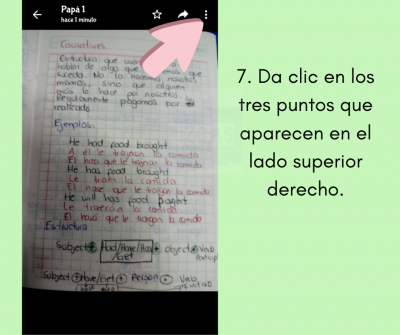 Papá 1
hace 1 minuto
7. Da clic en los
tres puntos que
aparecen en el
lado superior
derecho.
Causatives
Estructura que usamos
hablar de algo que que
suceda. No lo hacemos nosotros
mismos, sino que alguien
más lo hace por nosotros.
Regularmente pagamos por
realizado.
Ejemplos:
He had food brought
A él le trajeron la comida
Él hizo que le trajeran la comida
He has food brought
Le traen la comida
Él hace que le traigan la comida
He will has food
Le traerán la comida
Él hará que le traigan la comida
Estructura
Subject + Had/Have/Has + object + Verb
/Get
Subject + Have/Get + Person + Verb